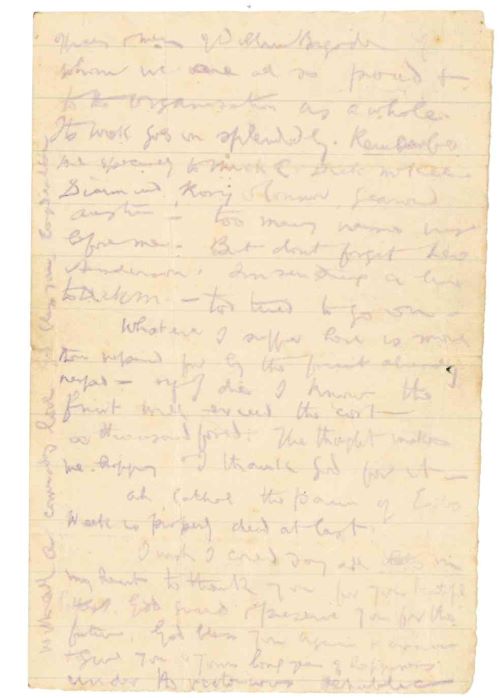 Officers & men of Dublin Brigade of
whom we are all so proud &
to the organisation as a whole.
Its work goes on splendidly. Remember
me specially to Mick C. Dick McKee
Diarmuid, Rory O'Connor, Gearoid,
Austin — too many names rise
before me. But dont forget Leo
Henderson. Im sending a line
to Dick M. — too tired to go on —
Whatever I suffer here is more
than repaid for by the fruit already
reaped — & if I die I know the
fruit will exceed the cost
a thousand fold. The thought makes
me happy. I thank God for it —
Ah Cathal the pain of Easter
Week is properly dead at last.
I wish I could say all that's in
my heart to thank you for your beautiful
God guard & preserve you for the
future. God bless you again & again
& give you & yours long years of happiness
under the victorious Republic
with all a comrades love